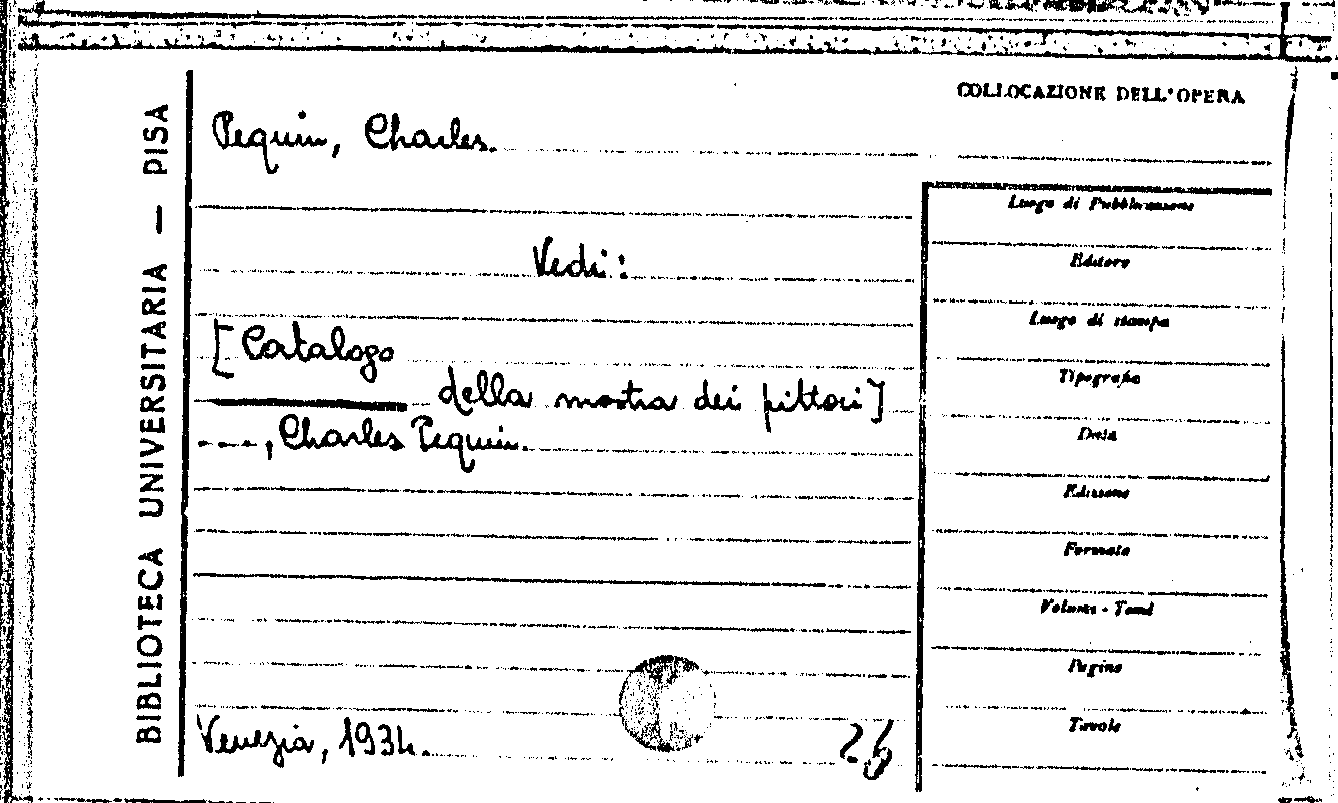 BIBLIOTECA UNIVERSITARIA — PISA
COLLOCAZIONE DELL'OPERA
Pequin, Charles.
Vedi:
[Catalogo
della mostra dei pittori]
---, Charles Pequin.
Venezia, 1934.
26
Luogo di Pubblicazione
Editore
Luogo di stampa
Tipografia
Data
Edizione
Formato
Volume - Tomi
Pagine
Tavole